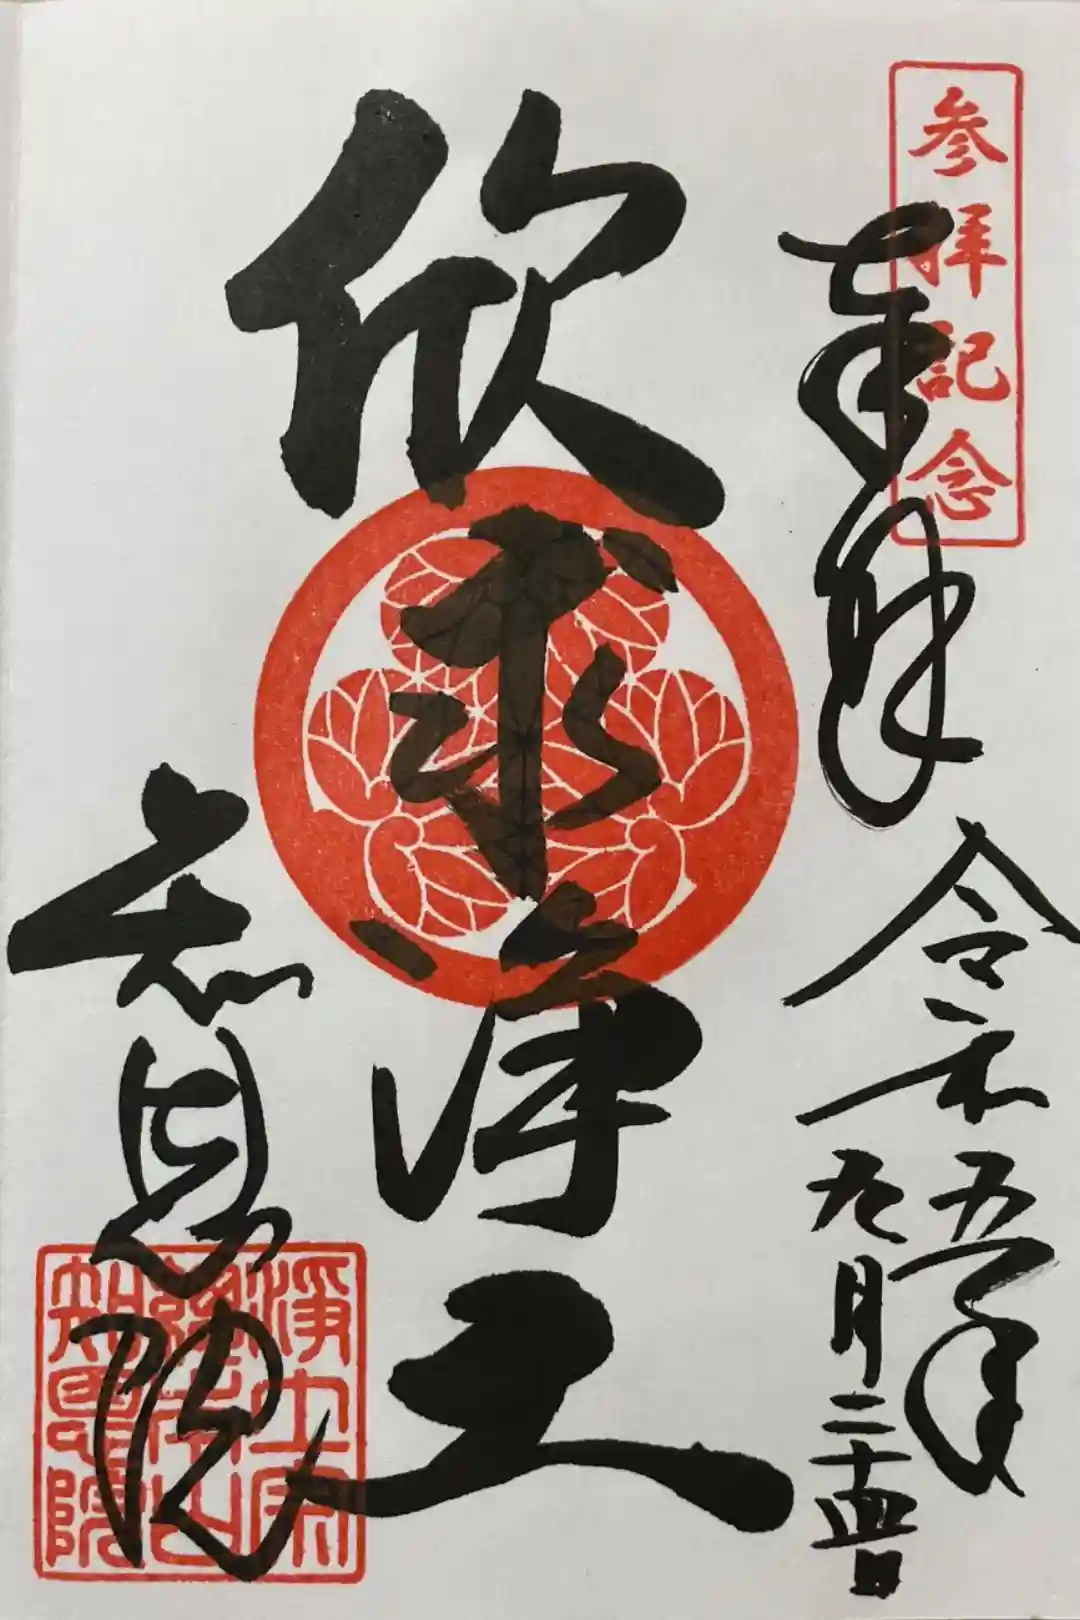 参拝記念
奉拝
令和五年
九月二十四日
欣求浄土
知恩院
浄土宗
総本山
知恩院